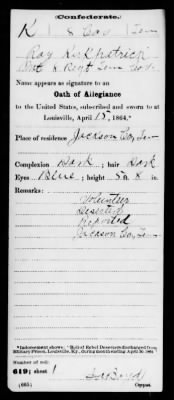 (Confederate.)
K 8 Cav Tenn
Ray Kirkpatrick
8 Regt Tenn Cav.
Name appears as signature to an
Oath of Allegiance
to the United States, subscribed and sworn to at
Louisville, April 15, 1864.*
Place of residence Jackson Co, Ten
Complexion Dark; hair Dark
Eyes Blue; height 5 ft. 8 in.
Remarks:
Volunteer
Deserted
Reported
Jackson Co, Ten
*Indorsement shows: "Roll of Rebel Deserters discharged from Military Prison, Louisville, Ky., during month ending April 30, 1864."
Number of roll:
619; sheet 1
(665) Copyist.